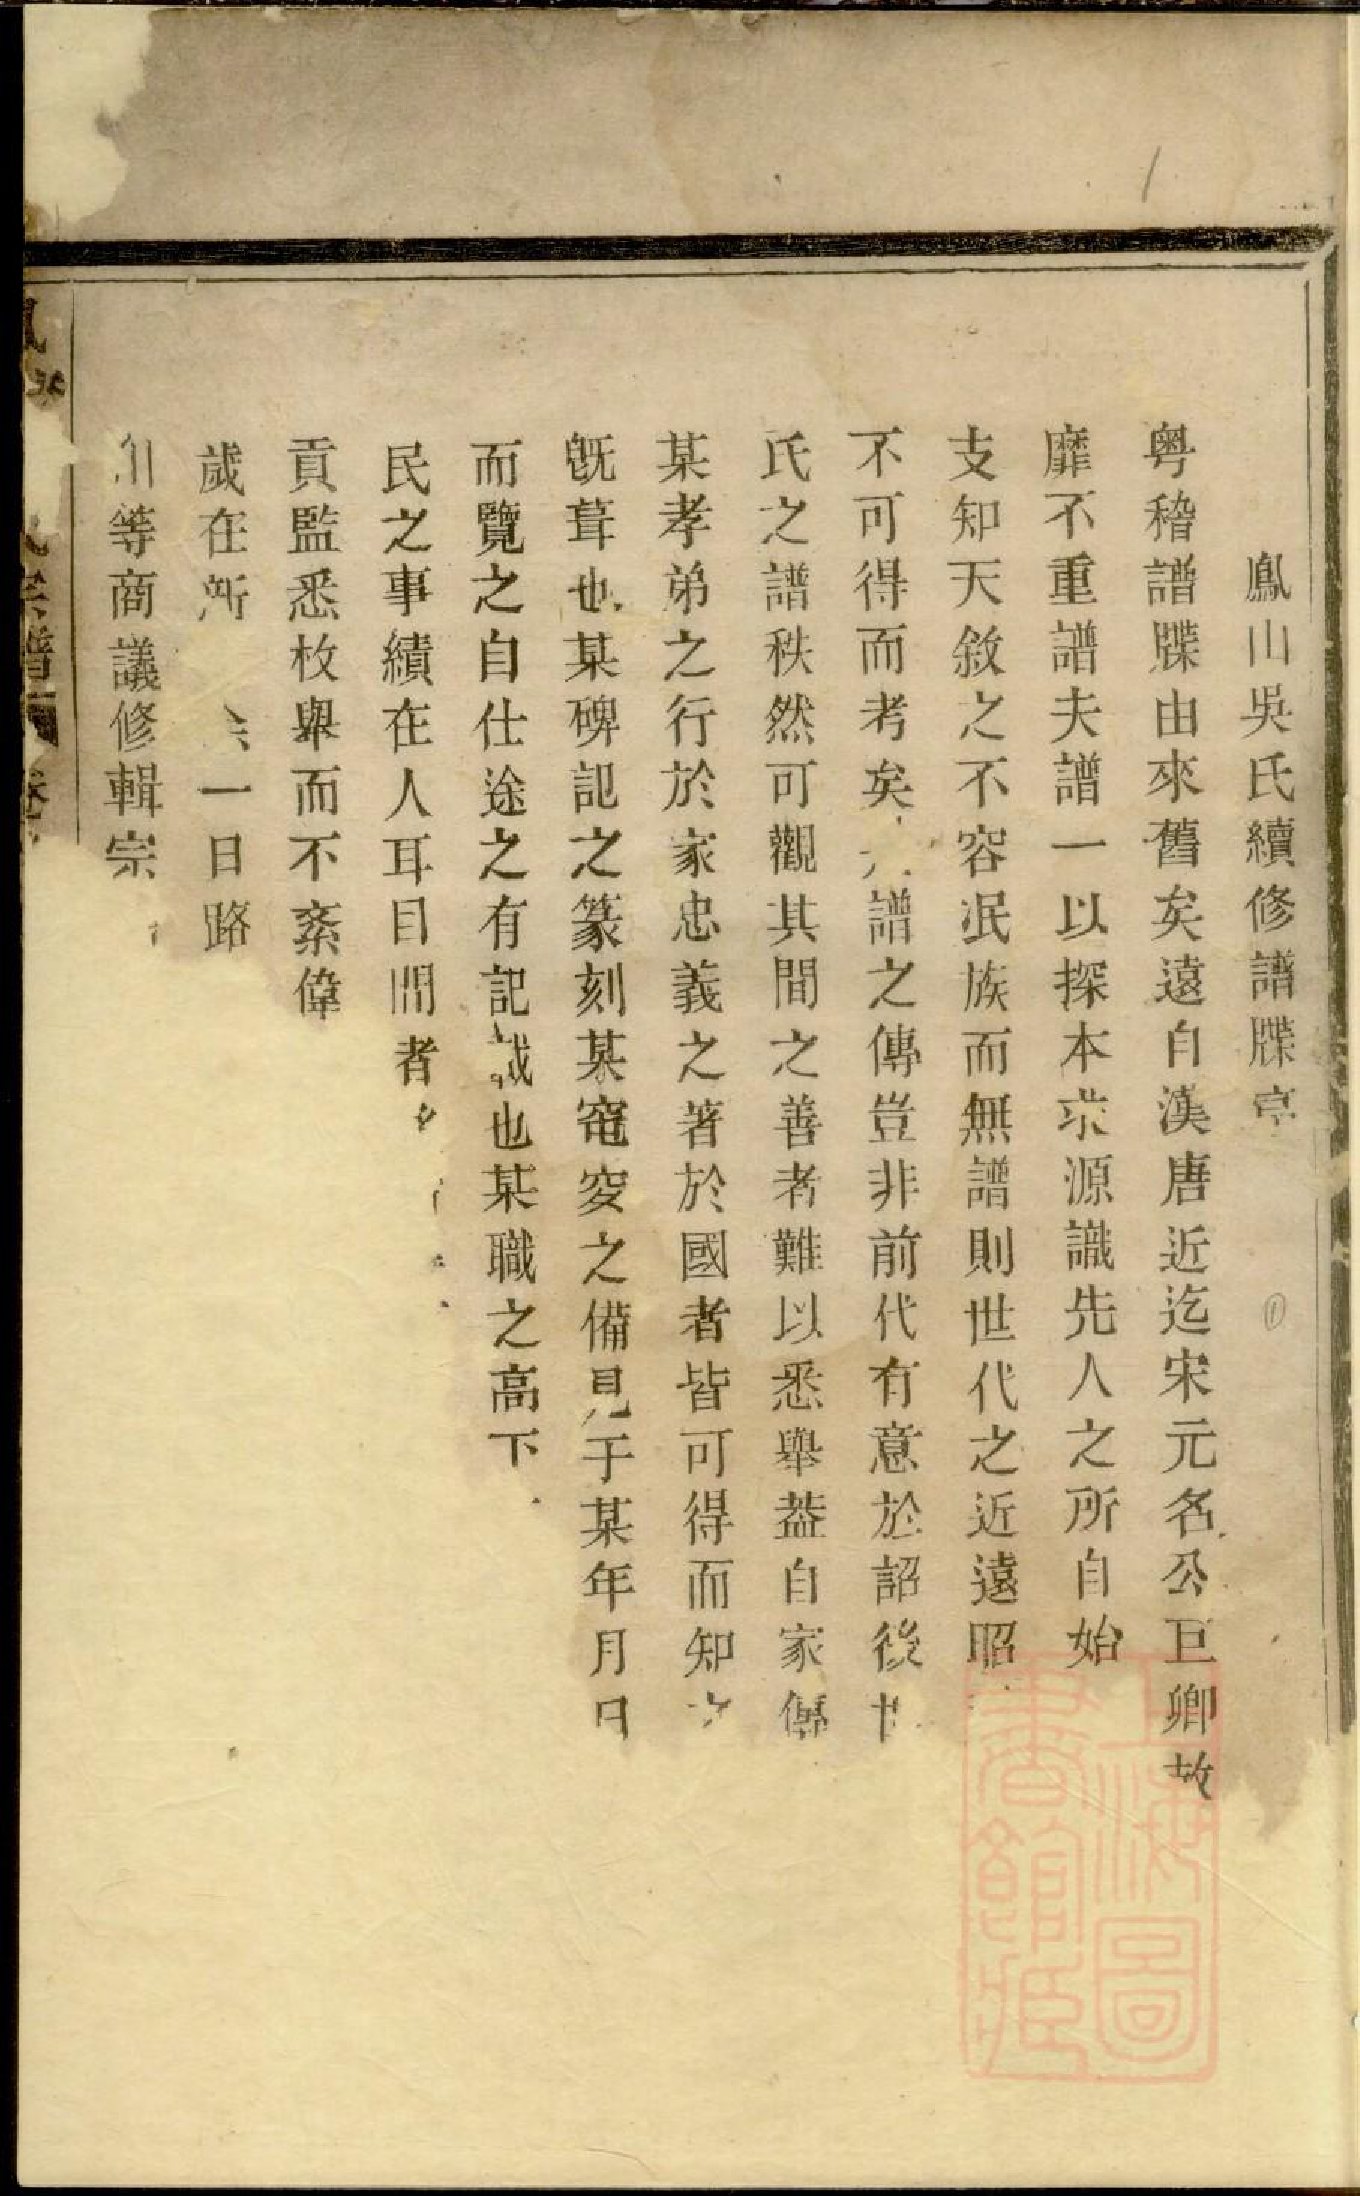 鳳山吳氏續修譜牒序
粤稽譜牒由來舊矣遠自漢唐近迄宋元名公巨卿故
靡不重譜夫譜一以探本求源識先人之所自始
支知天敘之不容泯族而無譜則世代之近遠昭
不可得而考矣譜之傳豈非前代有意於詔後世
氏之譜秩然可觀其間之善者難以悉舉葢自家傳
某孝弟之行於家忠義之著於國者皆可得而知之
旣葺也某碑記之篆刻某窀窆之備見于某年月日
而覽之自仕途之有記誠也某職之高下
民之事績在人耳目間者
貢監悉枚舉而不紊偉
歲在一日路
等商議修輯宗
氏宗譜 卷
上海圖書館藏
1
①